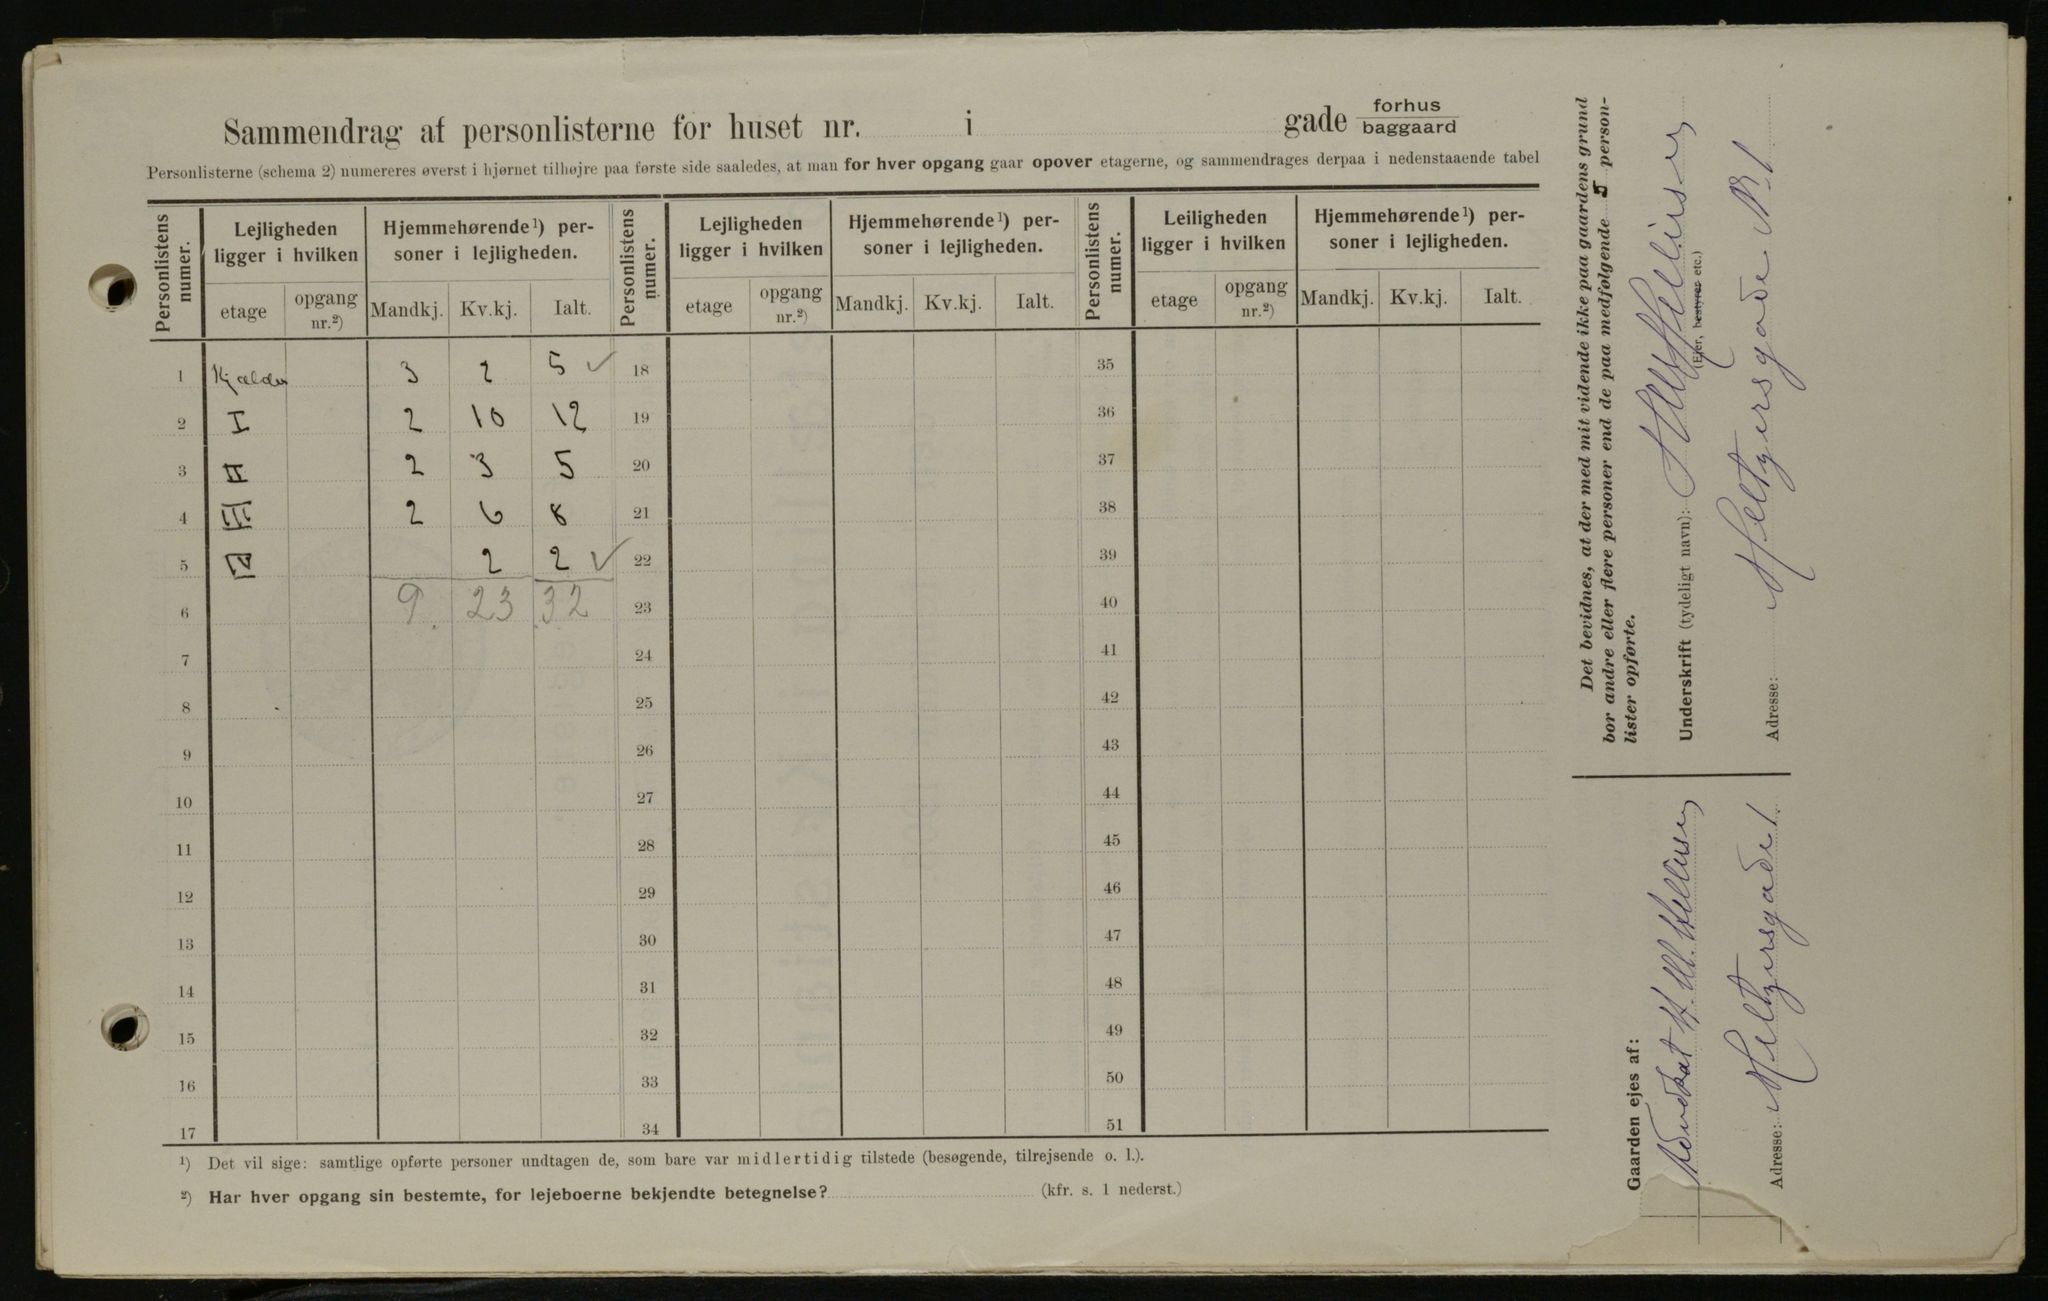 Sammendrag af personlisterne for huset nr. i gade forhus
baggaard
Personlisterne (schema 2) numereres øverst i hjørnet tilhøjre paa første side saaledes, at man for hver opgang gaar opover etagerne, og sammendrages derpaa i nedenstaaende tabel
Personlistens numer. Lejligheden ligger i hvilken Hjemmehørende¹) personer i lejligheden. Personlistens numer. Lejligheden ligger i hvilken Hjemmehørende¹) personer i lejligheden. Personlistens numer. Leiligheden ligger i hvilken Hjemmehørende¹) personer i lejligheden.
etage opgang nr.²) Mandkj. Kv.kj. Ialt. etage opgang nr.²) Mandkj. Kv.kj. Ialt. etage opgang nr.²) Mandkj. Kv.kj. Ialt.
1 Kjælder 3 2 5 ✓ 18 35
2 I 2 10 12 19 36
3 II 2 3 5 20 37
4 III 2 6 8 21 38
5 IV 2 2 ✓ 22 39
6 9 23 32 23 40
7 24 41
8 25 42
9 26 43
10 27 44
11 28 45
12 29 46
13 30 47
14 31 48
15 32 49
16 33 50
17 34 51
¹) Det vil sige: samtlige opførte personer undtagen de, som bare var midlertidig tilstede (besøgende, tilrejsende o. l.).
²) Har hver opgang sin bestemte, for lejeboerne bekjendte betegnelse? (kfr. s. 1 nederst.)
Det bevidnes, at der med mit vidende ikke paa gaardens grund
bor andre eller flere personer end de paa medfølgende 5 person-
lister opførte.
Underskrift (tydeligt navn):
(Ejer, bestyrer etc.)
Adresse: Meltzersgade No 1
Gaarden ejes af:
Advokat
Adresse: Meltzersgade 1